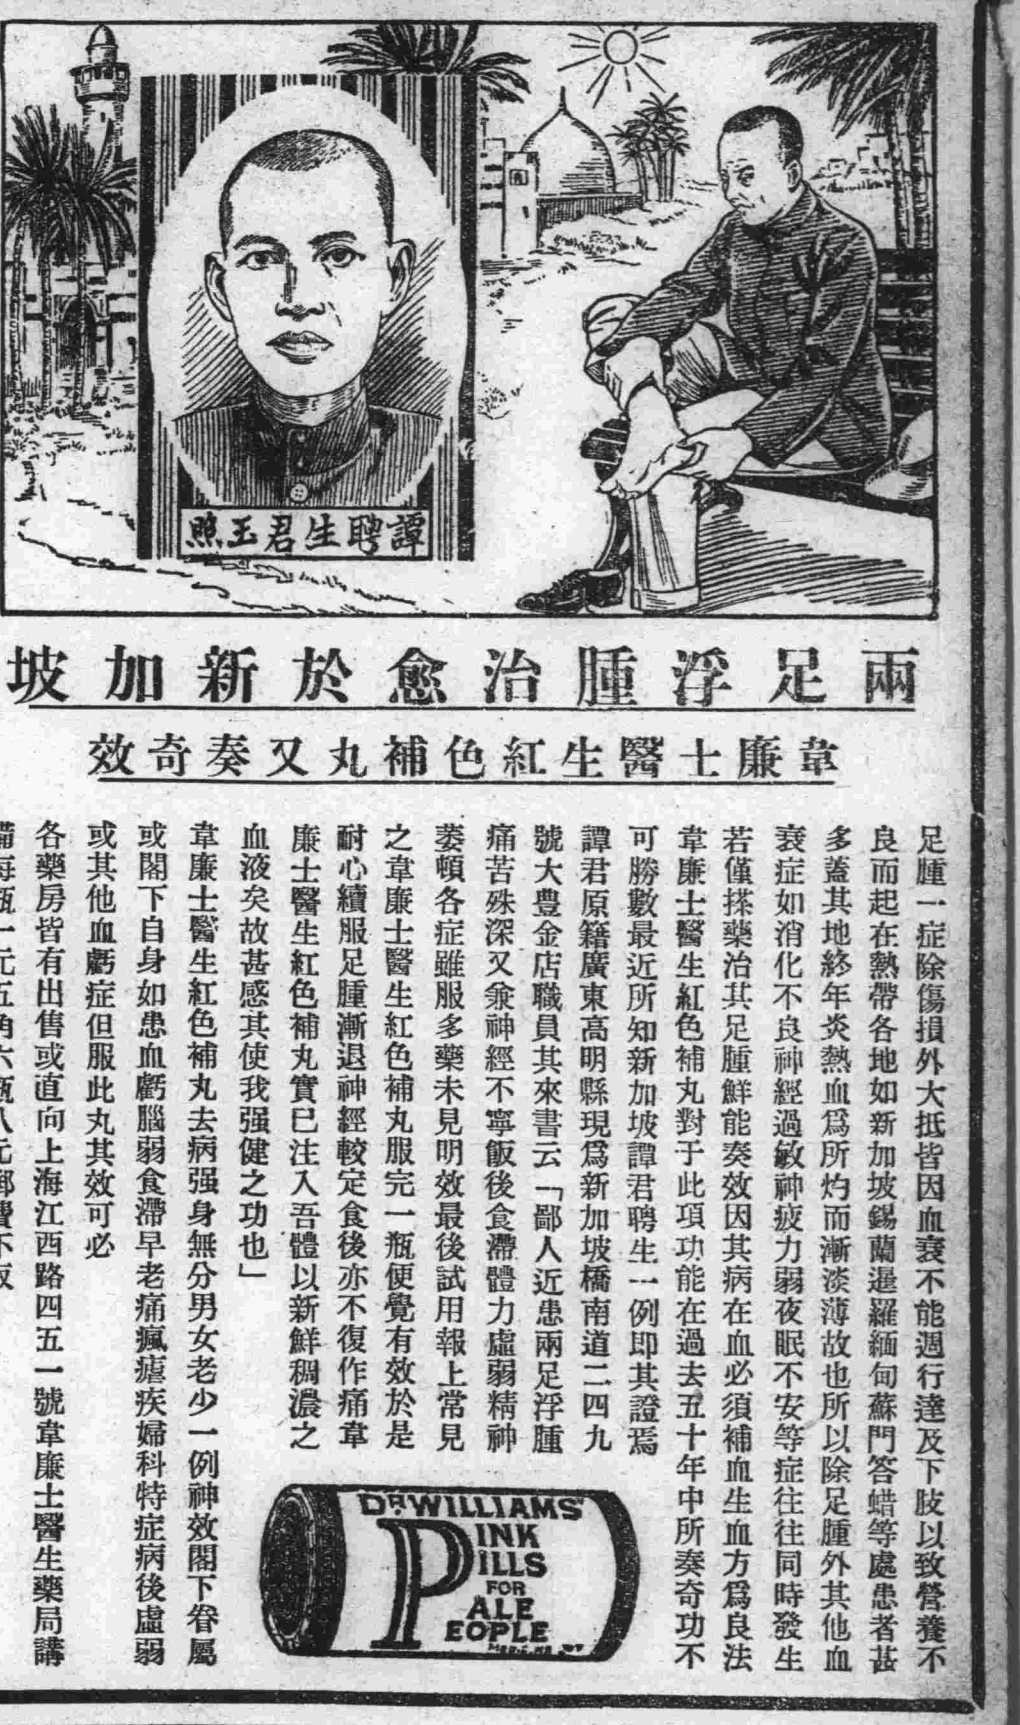 譚聘生君玉照
兩足浮腫治愈於新加坡
韋廉士醫生紅色補丸又奏奇效
足腫一症除傷損外大抵皆因血衰不能週行達及下肢以致營養不
良而起在熱帶各地如新加坡錫蘭暹羅緬甸蘇門答蜡等處患者甚
多蓋其地終年炎熱血爲所灼而漸淡薄故也所以除足腫外其他血
衰症如消化不良神經過敏神疲力弱夜眠不安等症往往同時發生
若僅搽藥治其足腫鮮能奏效因其病在血必須補血生血方爲良法
韋廉士醫生紅色補丸對于此項功能在過去五十年中所奏奇功不
可勝數最近所知新加坡譚君聘生一例即其證焉
譚君原籍廣東高明縣現爲新加坡橋南道二四九
號大豐金店職員其來書云「鄙人近患兩足浮腫
痛苦殊深又兼神經不寧飯後食滯體力虛弱精神
萎頓各症雖服多藥未見明效最後試用報上常見
之韋廉士醫生紅色補丸服完一瓶便覺有效於是
耐心續服足腫漸退神經較定食後亦不復作痛韋
廉士醫生紅色補丸實已注入吾體以新鮮稠濃之
血液矣故甚感其使我强健之功也」
韋廉士醫生紅色補丸去病强身無分男女老少一例神效閣下眷屬
或閣下自身如患血虧腦弱食滯早老痛瘋瘧疾婦科特症病後虛弱
或其他血虧症但服此丸其效可必
各藥房皆有出售或直向上海江西路四五一號韋廉士醫生藥局講
每瓶一元五角六瓶八元郵費不
DR. WILLIAMS'
PINK
PILLS
FOR
PALE
PEOPLE